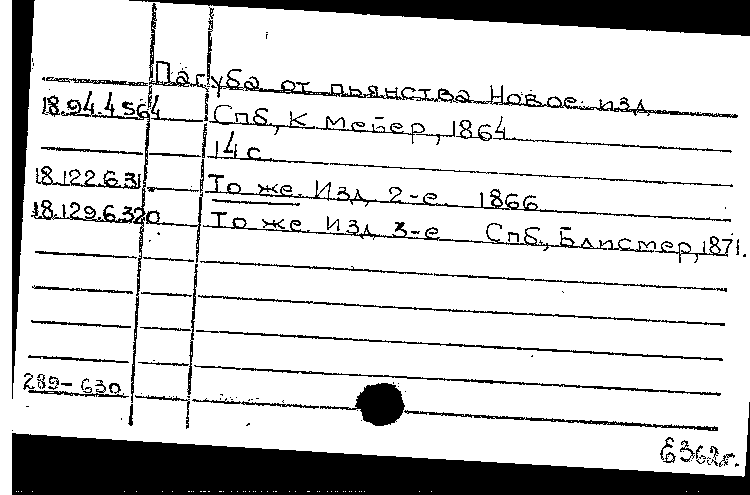 Пагуба от пьянства Новое изд
18.94.4564 Спб, К Мейер, 1864
14 с.
18.122.6.31. То же. Изд 2-е. 1866
18.129.6.320 То же. Изд 3-е Спб., Блисмер, 1871.
289-630
Е362г.